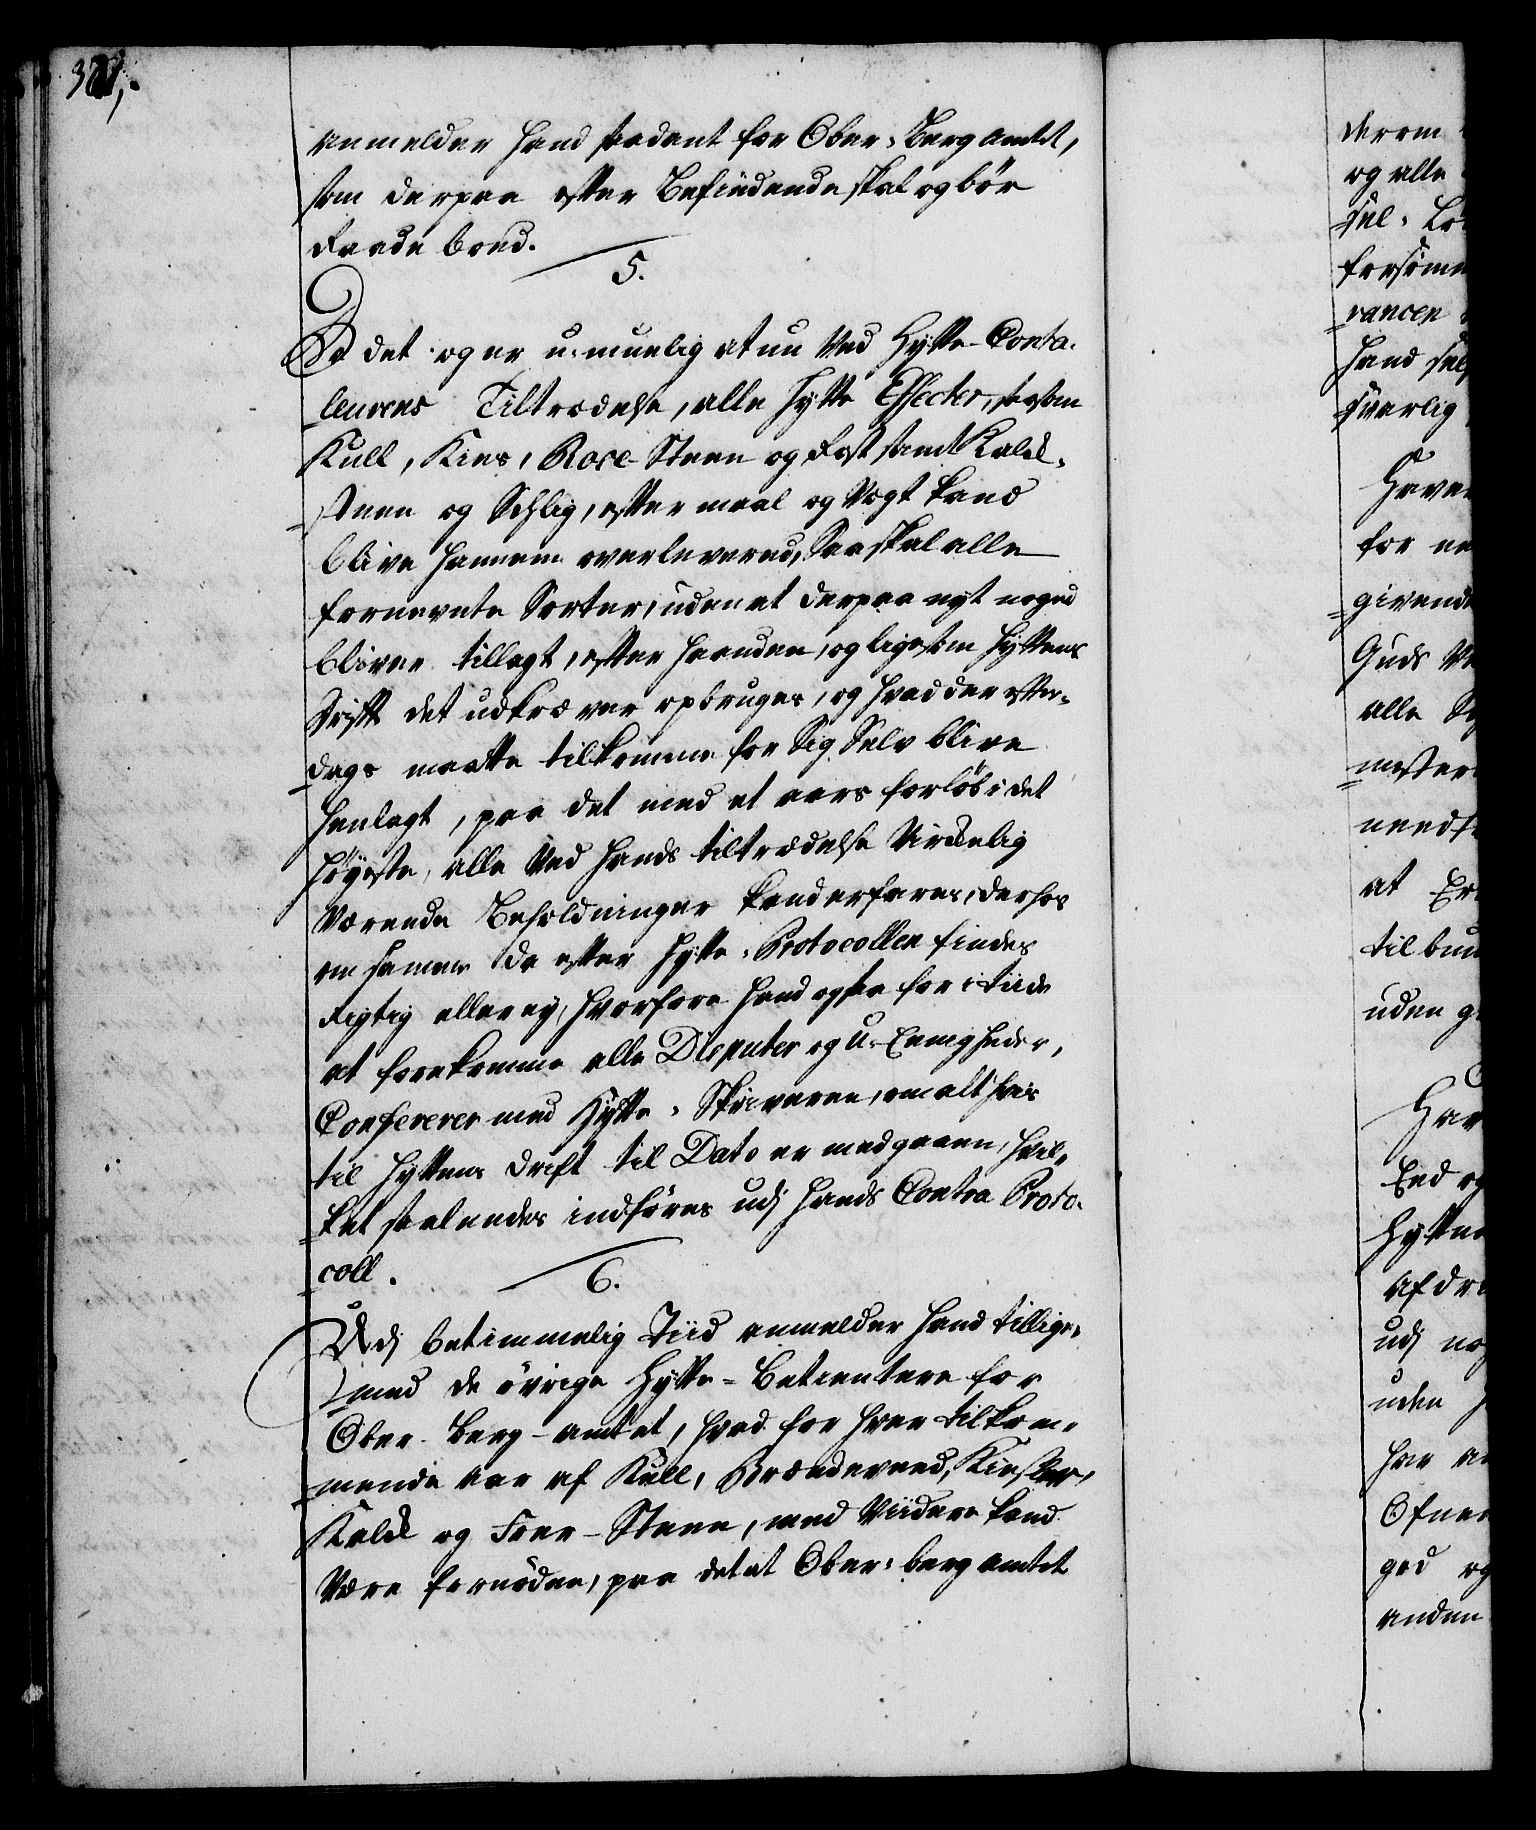 anmelder hand saadant for Ober-Bergamtet,
som derpaa efter Befindende skal og bör
Raade bood.
5.
Da det og er u-muelig at nu Ved Hytte-Conta-
leurens Tiltrædelse, alle Hytte Effecter, saasom
Kull, Kies, Roce-Steen og Rost samt Kalk-
steen og Schlig, efter maal og Vegt kand
blive hannem overleveret, Saa skal alle
fornevnte Sorter, uden at derpaa nyt noged
bliver tillagt, efter haanden, og ligesom Hyttens
Drifft det udkræver opbruges, og hvad der efter-
dags maatte tilkomme for Sig Selv blive
henlagt, paa det med et aars forlöb i det
höyeste, alle Ved hands tiltrædelse Virkelig
Værende Beholdninger kand erfares, derhos
om samme da efter Hytte-Protocollen findes
Rigtig eller ey, hvorfore hand ogsaa for i tiide
at forekomme alle Disputer og U-Eenigheder,
Confererer med Hytte-Skriveren, om alt hvis
til Hyttens drift til Dato er medgaaen, hvil-
ket saaledes indföres udj hands Contra Proto-
coll.
6.
Udj betimmelig Tiid anmelder hand tillige-
med de övrige Hytte-Betientere for
Ober-Berg-amtet, hvad for hver tilkom-
mende aar af Kull, Brændeveed, Kiesler,
Kalk og Foer-Steen, med Viidere kand
Være fornöden, paa det at Ober-bergamtet
derom
og alle
forsöm
rancen
hand selv
svarlig
Have
for
givende
Guds
alle
mester
at
til
uden
End og
Hytte
udj
uden
har
Ofne
god og
anden